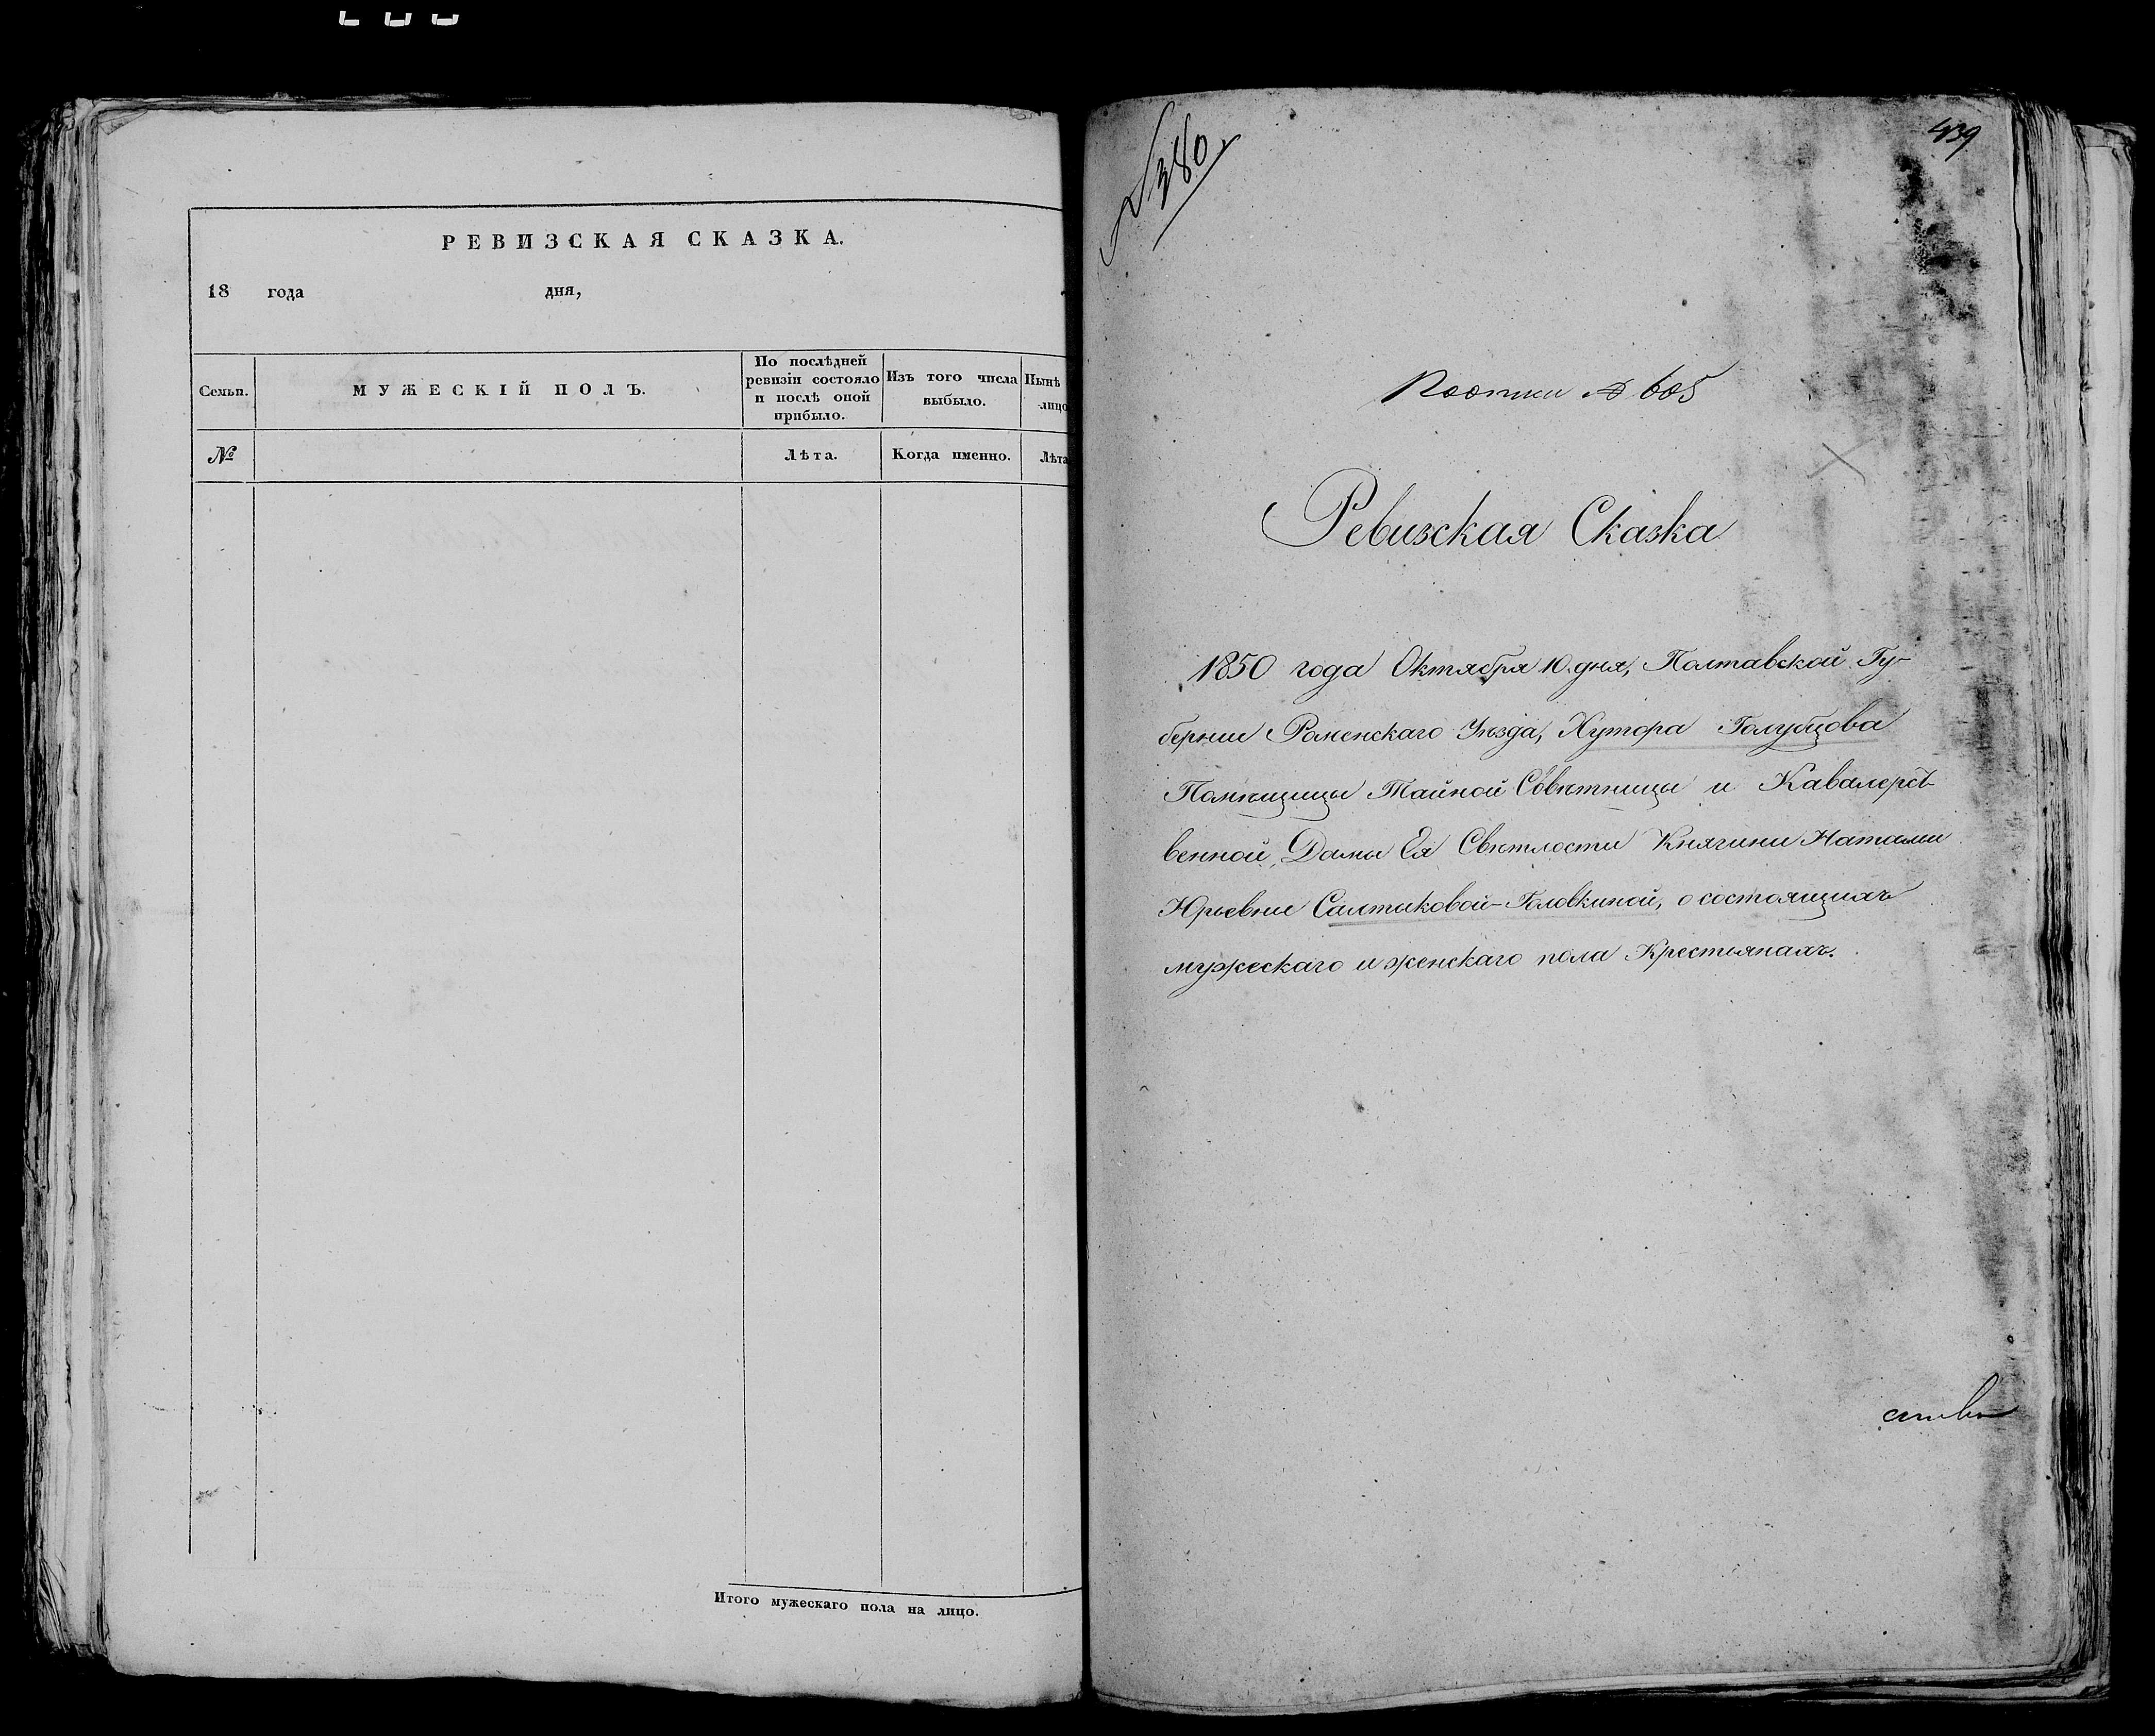 РЕВИЗСКАЯ СКАЗКА.
18 года дня,
Семьи.
МУЖЕСКІЙ ПОЛЪ.
По послѣдней
ревизіи состояло
и послѣ оной
прибыло.
Изъ того числа
выбыло.
Нынѣ
лицо
№
Лѣта.
Когда именно.
Лѣта
Итого мужескаго пола на лицо.
№ 380.
439
№ 605
Ревизская Сказка
1850 года Октября 10. дня, Полтавской Гу-
берніи Роменскаго Уѣзда, Хутора Голубцова
Помѣщицы Тайной Совѣтницы и Кавалерст-
венной Дамы Ея Свѣтлости Княгини Наталіи
Юрьевны Салтыковой-Головкиной, о состоящихъ
мужескаго и женскаго пола Крестьянахъ.